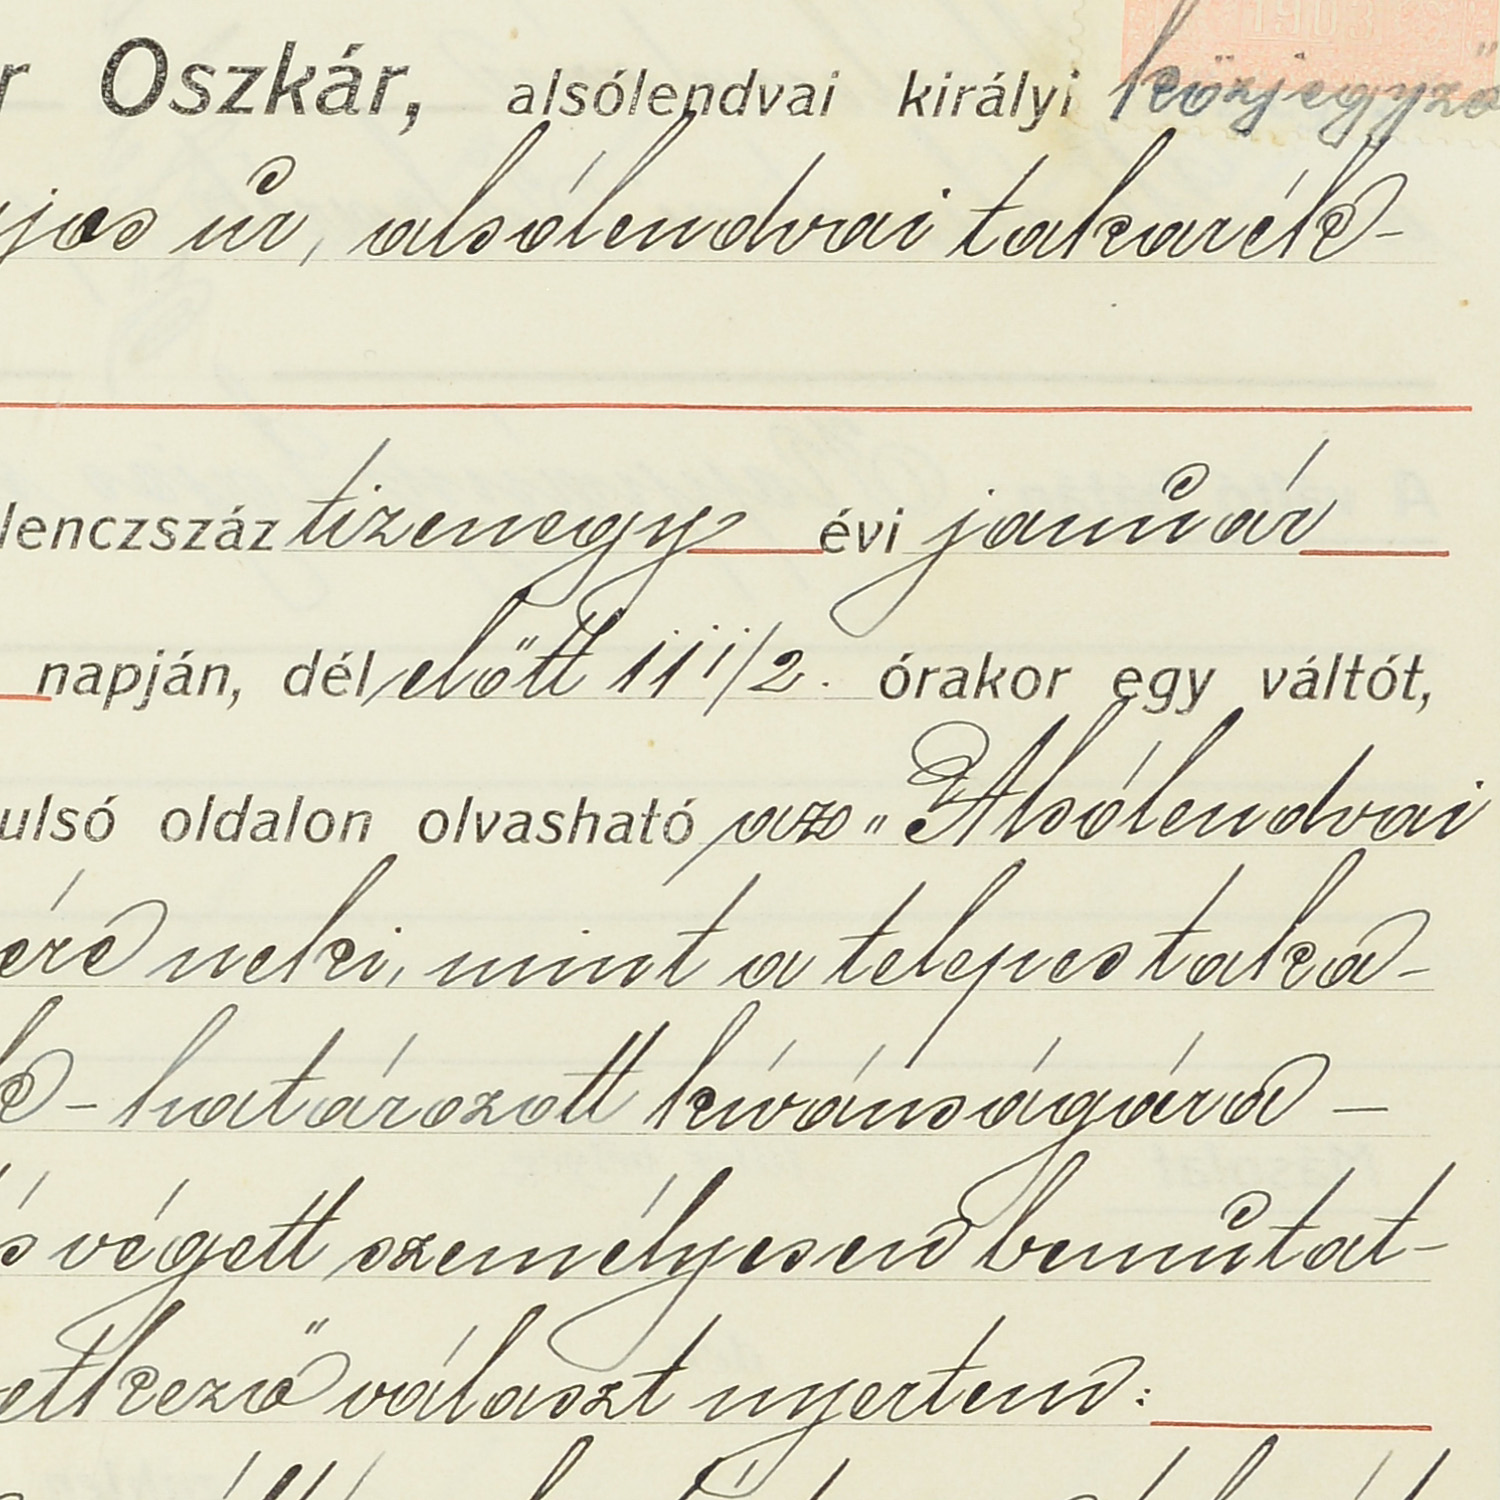 r Oszkár, alsólendvai királyi közjegyző
jos úr, alsólendvai takarék-
lenczszáz tizenegy évi január
napján, délelőtt 11 1/2. órakor egy váltót,
ulsó oldalon olvasható az „Alsólendvai
ére neki, mint a telepes taka-
- határozott kívánságára —
s végett személyesen bemutat-
etkező választ nyertem: